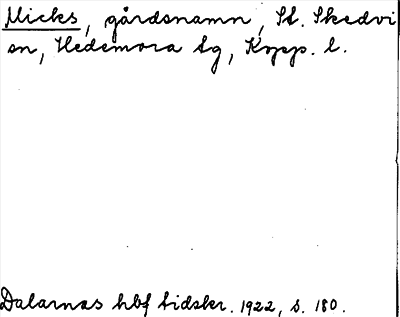 Micks, gårdsnamn, St. Skedvi
sn, Hedemora tg, Kopp. l.
Dalarnas hbf tidskr. 1922, s. 180.